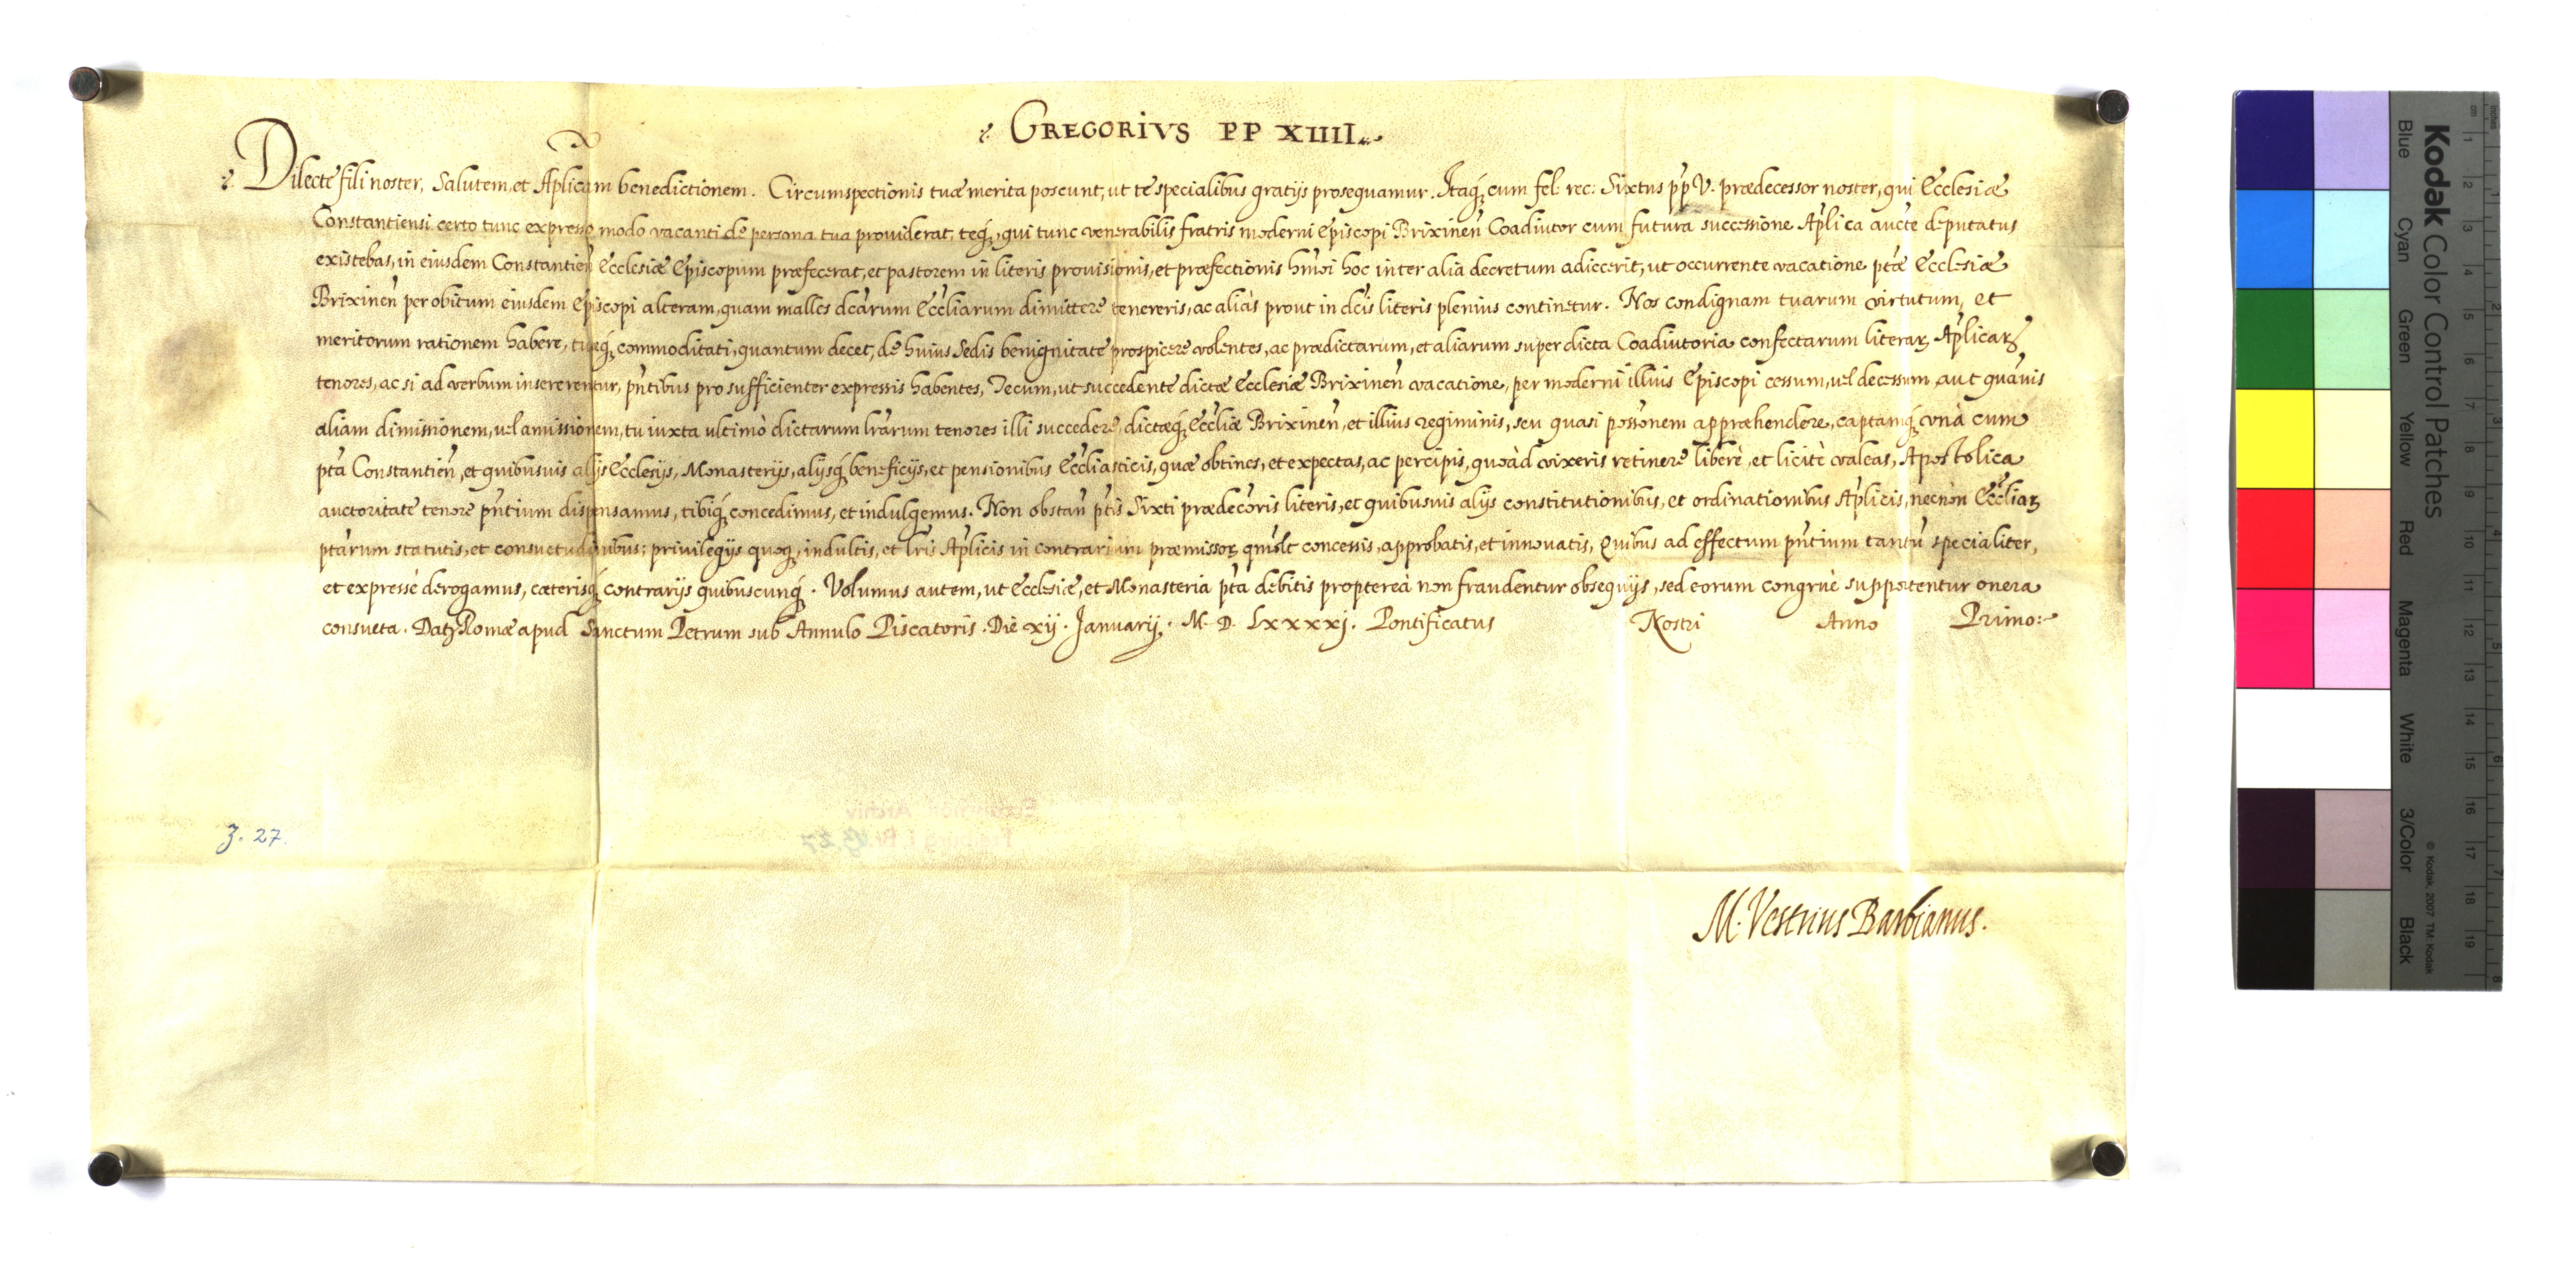 GREGORIVS PP XIIII.
Dilecte fili noster, Salutem, et Aplicam benedictionem. Circumspectionis tuæ merita poscunt, ut te specialibus gratijs prosequamur. Itaq́; cum fel. rec: Sixtus p̃p V. prædecessor noster, qui Ecclesiæ
Constantiensi certo tunc expresso modo vacanti de persona tua prouiderat, teq́;, qui tunc venerabilis fratris moderni Episcopi Brixineñ Coadiutor cum futura successione Aplica aucte deputatus
existebas, in eiusdem Constantieñ Ecclesiæ Episcopum præfecerat, et pastorem in literis prouisionis, et præfectionis hm̃oi hoc inter alia decretum adiecerit, ut occurrente vacatione ptæ Ecclesiæ
Brixineñ per obitum eiusdem Episcopi alteram, quam malles dcarum Eccliarum dimittere tenereris, ac aliàs prout in dcis literis plenius continetur. Nos condignam tuarum virtutum, et
meritorum rationem habere, tuæq́; commoditati, quantum decet, de huius Sedis benignitate prospicere volentes, ac prædictarum, et aliarum super dicta Coadiutoria confectarum literaꝝ Aplicaꝝ
tenores, ac si ad verbum insererentur, pñtibus pro sufficienter expressis habentes, Tecum, ut succedente dictæ Ecclesiæ Brixineñ vacatione, per moderni illius Episcopi cessum, uel decessum, aut quãuis
aliam dimissionem, uel amissionem, tu iuxta ultimò dictarum lrarum tenores illi succedere, dictæq́; Eccliæ Brixineñ, et illius regiminis, seu quasi possonem appræhendere, captamq́; vnà cum
pta Constantieñ, et quibusuis alijs Ecclesijs, Monasterijs, alijsq́; beneficijs, et pensionibus Eccliasticis, quæ obtines, et expectas, ac percipis, quoàd vixeris retinere liberè, et licitè valeas, Apostolica
auctoritate tenore pñtium dispensamus, tibiq́; concedimus, et indulgemus. Non obstañ ptis Sixti prædecoris literis, et quibusuis alijs constitutionibus, et ordinationibus Aplicis, necnon Eccliaꝝ
ptarum statutis, et consuetudinibus; priuilegijs quoq́;, indultis, et lris Aplicis in contrarium præmissoꝝ qm̃olt concessis, approbatis, et innouatis, Quibus ad effectum pñtium tantũ specialiter,
et expressè derogamus, cæterisq́; contrarijs quibuscunq́;. Volumus autem, ut Ecclesiæ, et Monasteria pta debitis proptereà non fraudentur obsequijs, sed eorum congruè supportentur onera
consueta. Datꝝ Romæ apud Sanctum Petrum sub Annulo Piscatoris. Die xij. Januarij. M. D. Lxxxxj. Pontificatus Nostri Anno Primo:
3. 27.
M. Vestrius Barbianus.
Kodak Color Control Patches
Blue Cyan Green Yellow Red Magenta White 3/Color Black
© Kodak, 2007 TM: Kodak
cm 1 2 3 4 5 6 7 8 9 10 11 12 13 14 15 16 17 18 19
inches 1 2 3 4 5 6 7 8